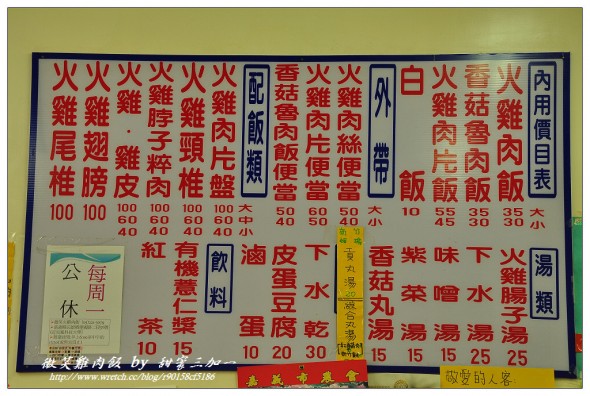 內用價目表
大
小
火雞肉飯
35
30
香菇魯肉飯
35
30
火雞肉片飯
55
45
白飯
10
外帶
大
小
火雞肉絲便當
50
40
火雞肉片便當
60
50
香菇魯肉飯便當
50
40
配飯類
大
中
小
火雞肉片盤
100
60
40
火雞頸椎
100
火雞脖子粹肉
100
60
40
火雞·雞皮
100
60
40
火雞翅膀
100
火雞尾椎
100
湯類
火雞腸子湯
25
下水湯
25
味噌湯
15
紫菜湯
15
香菇丸湯
15
下水乾
30
皮蛋豆腐
20
滷蛋
10
飲料
有機薏仁漿
15
紅茶
10
每周一
公休
嘉義市農會
敬愛的人客
微笑雞肉飯 by 甜蜜三加一
http://www.wretch.cc/blog/r90158cf5186